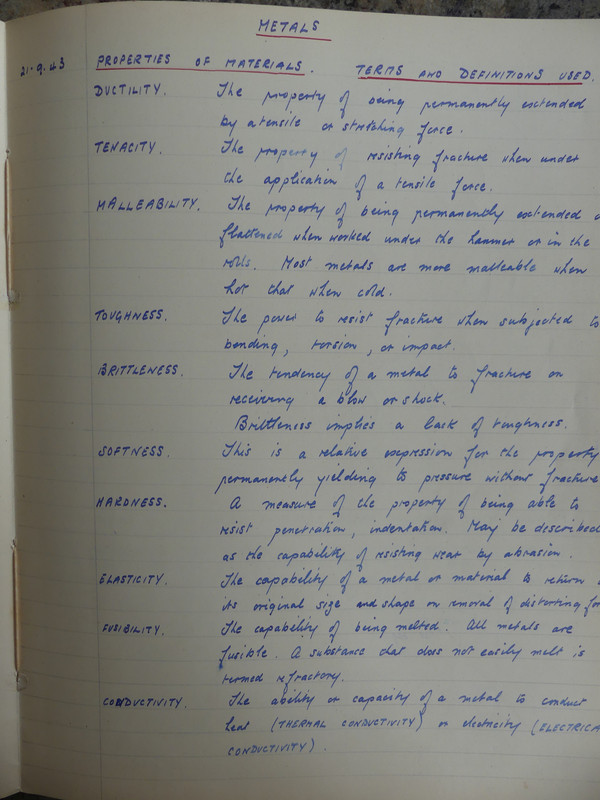 METALS
21-9-43 PROPERTIES OF MATERIALS. TERMS AND DEFINITIONS USED.
DUCTILITY. The property of being permanently extended
by a tensile or stretching force.
TENACITY. The property of resisting fracture when under
the application of a tensile force.
MALLEABILITY. The property of being permanently extended o
flattened when worked under the hammer or in the
rolls. Most metals are more malleable when
hot that when cold.
TOUGHNESS. The power to resist fracture when subjected to
bending, torsion, or impact.
BRITTLENESS. The tendency of a metal to fracture on
receiving a blow or shock.
Brittleness implies a lack of toughness.
SOFTNESS. This is a relative expression for the property
permanently yielding to pressure without fracture
HARDNESS. A measure of the property of being able to
resist penetration, indentation. May be described
as the capability of resisting wear by abrasion.
ELASTICITY. The capability of a metal or material to return
its original size and shape on removal of distorting for
FUSIBILITY. The capability of being melted. All metals are
fusible. A substance that does not easily melt is
termed refractory.
CONDUCTIVITY. The ability or capacity of a metal to conduct
heat (THERMAL CONDUCTIVITY) or electricity (ELECTRICA
CONDUCTIVITY).